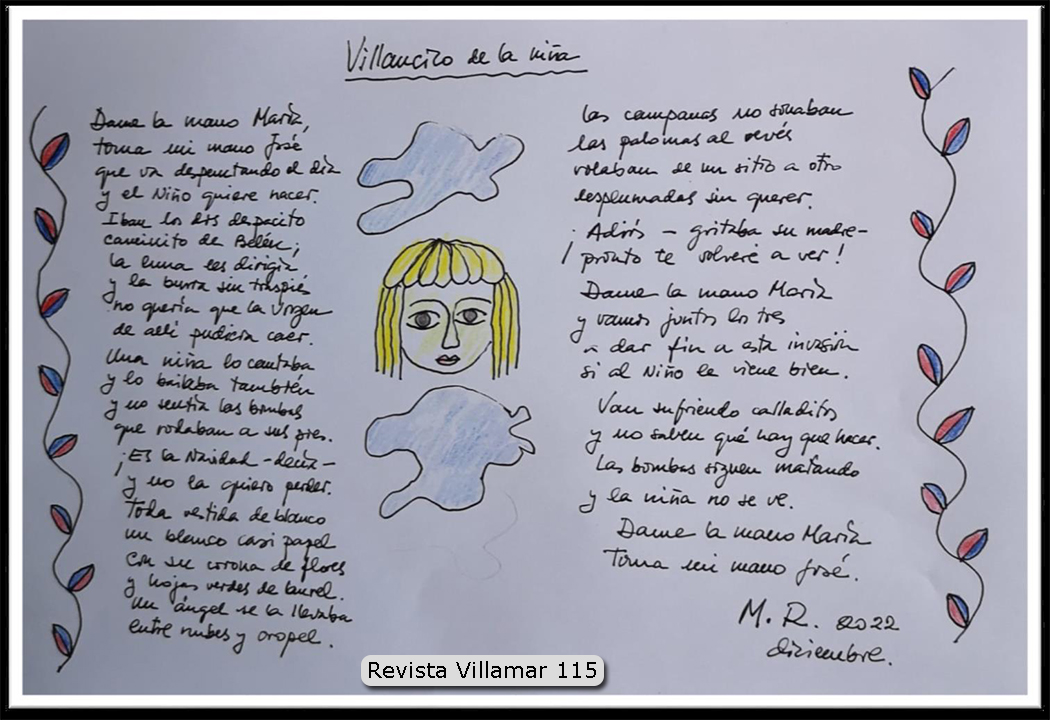 Villancico de la niña
Dame la mano María,
toma mi mano José
que va despuntando el día
y el Niño quiere nacer.
Iban los dos despacito
caminito de Belén;
la luna les dirigía
y la burra sin traspiés
no quería que la Virgen
de allí pudiera caer.
Una niña lo cantaba
y lo bailaba también
y no sentía las bombas
que rodaban a sus pies.
¡Es la Navidad - decía -
y no la quiero perder.
Toda vestida de blanco
un blanco casi papel
con su corona de flores
y hojas verdes de laurel.
Un ángel se la llevaba
entre nubes y oropel.
Las campanas no sonaban
las palomas al revés
volaban de un sitio a otro
desplumadas sin querer.
¡Adiós - gritaba su madre -
pronto te volveré a ver!
Dame la mano María
y vamos juntos los tres
a dar fin a esta invasión
si al Niño le viene bien.
Van sufriendo calladitos
y no saben qué hay que hacer.
Las bombas siguen matando
y la niña no se ve.
Dame la mano María
Toma mi mano José.
M. R. 2022
diciembre.
Revista Villamar 115